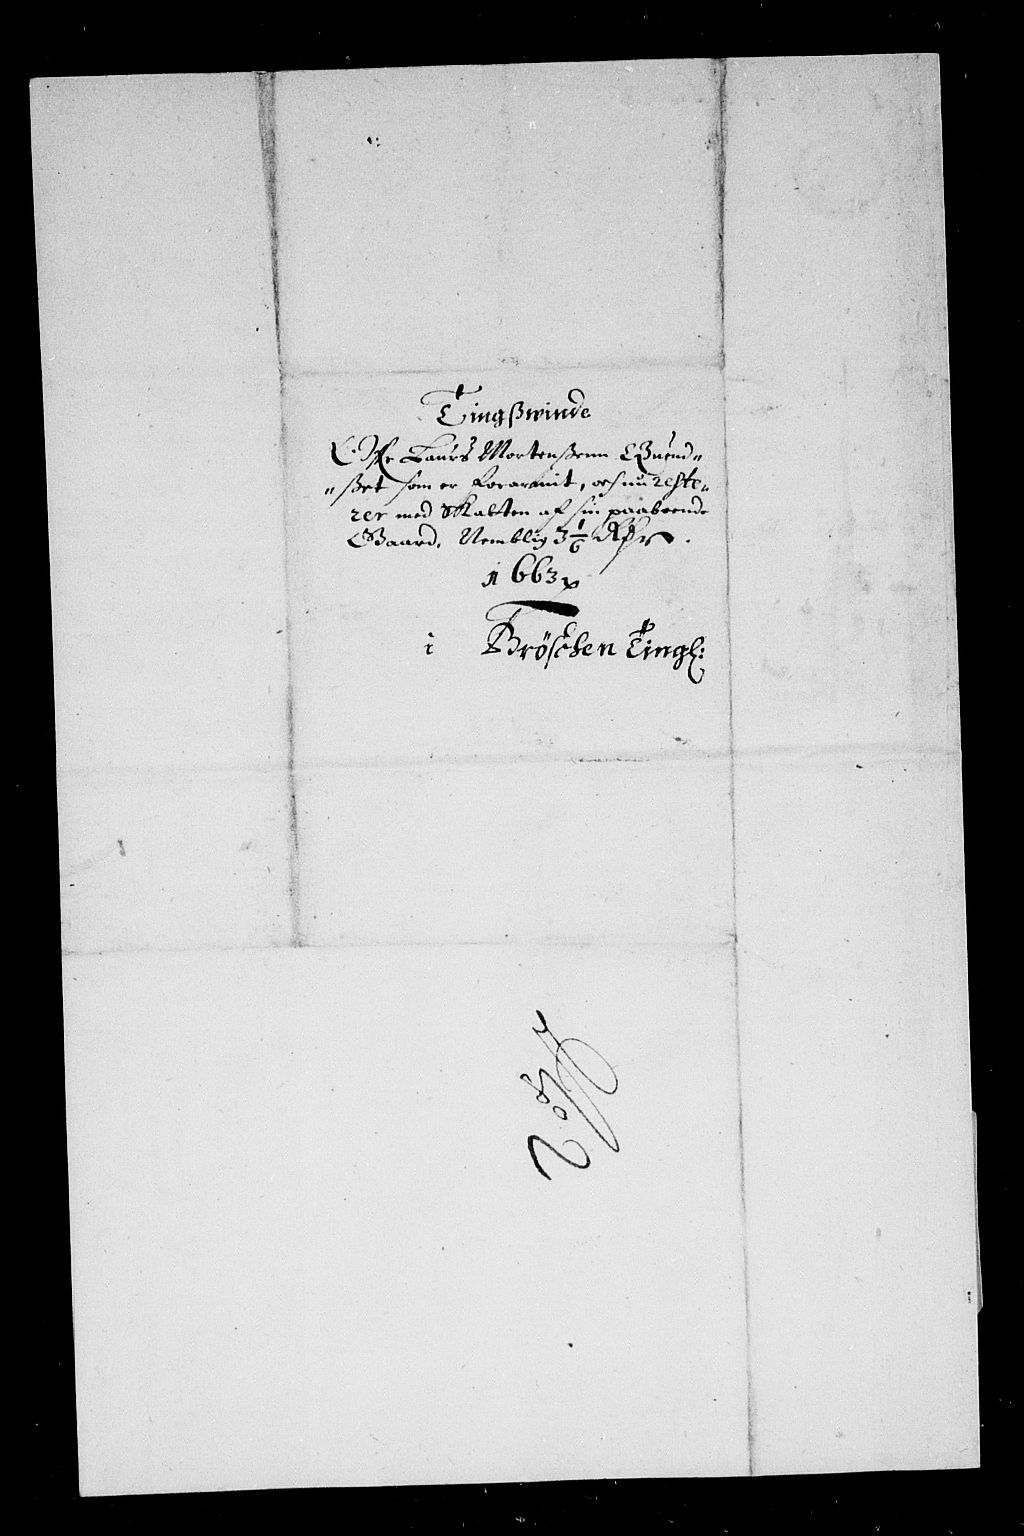 Tingßwinde
Offr Laurs Mortenßenn
ßet som er forarmit, och nu reste-
rer med Skatten af sin paaboende
Gaard, Nemblig 3 1/6 Rdr.
1663
i Brøschen Tingl: